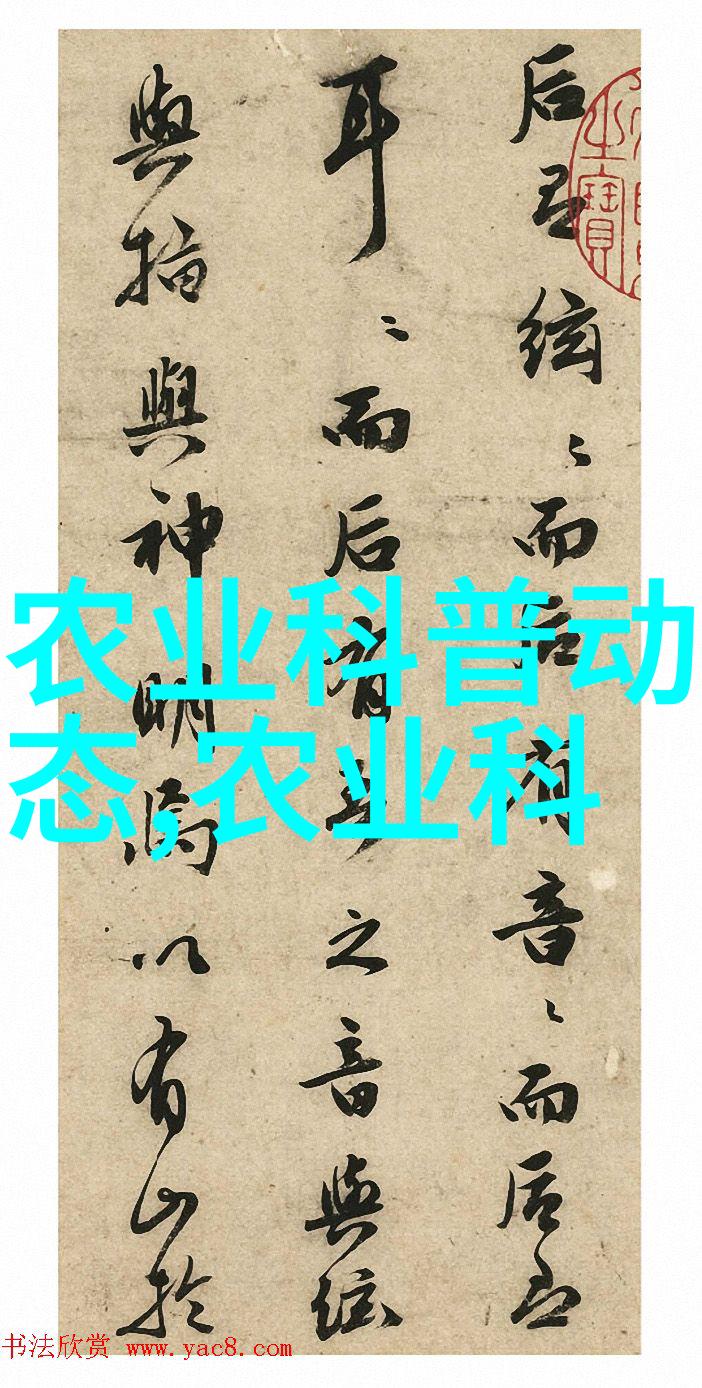 后絃〻而后有音〻而后
耳〻而后有之音與絃
與指與神明為以有山於
之寶
农业科普动
态,农业科
书法欣赏 www.yac8.com